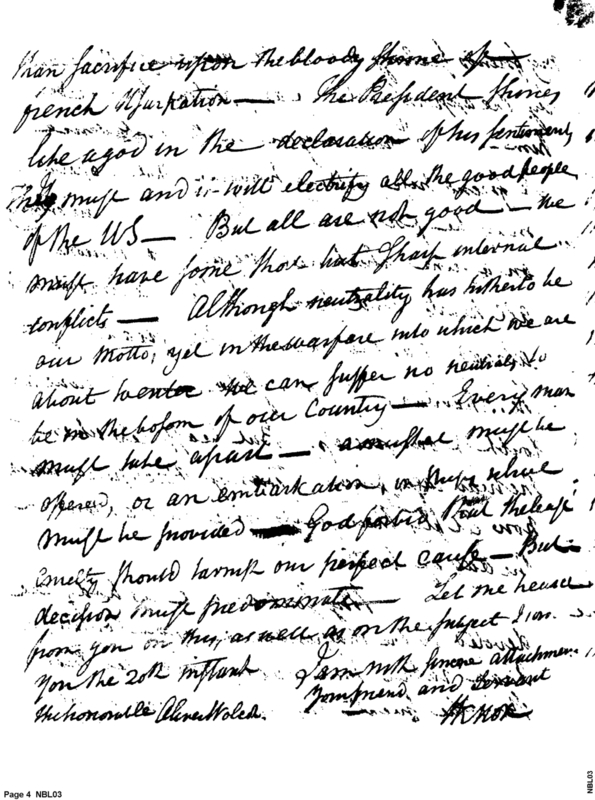 than sacrifice upon the bloody shrine of
french Usurpation — The President shines
like a god in the declaration of his sentiments
They must and it will electrify all the good people
of the US — But all are not good — We
must have some short but sharp internal
conflicts — Although neutrality has hitherto be
our motto, yet in the warfare into which we are
about to enter We can suffer no neutrals to
be in the bosom of our Country — Every man
must take a part — a must be
opened, or an embarkation, in ships where
must be provided — God forbid that the least
cruelty should tarnish our perfect cause — But
decision must predominate — Let me hear
from you on this, as well as on the subject I
you the 20th instant I am with sincere attachment
Your friend and Servant
The honorable Oliver Wolcott. HKnox
Page 4 NBL03
NBL03